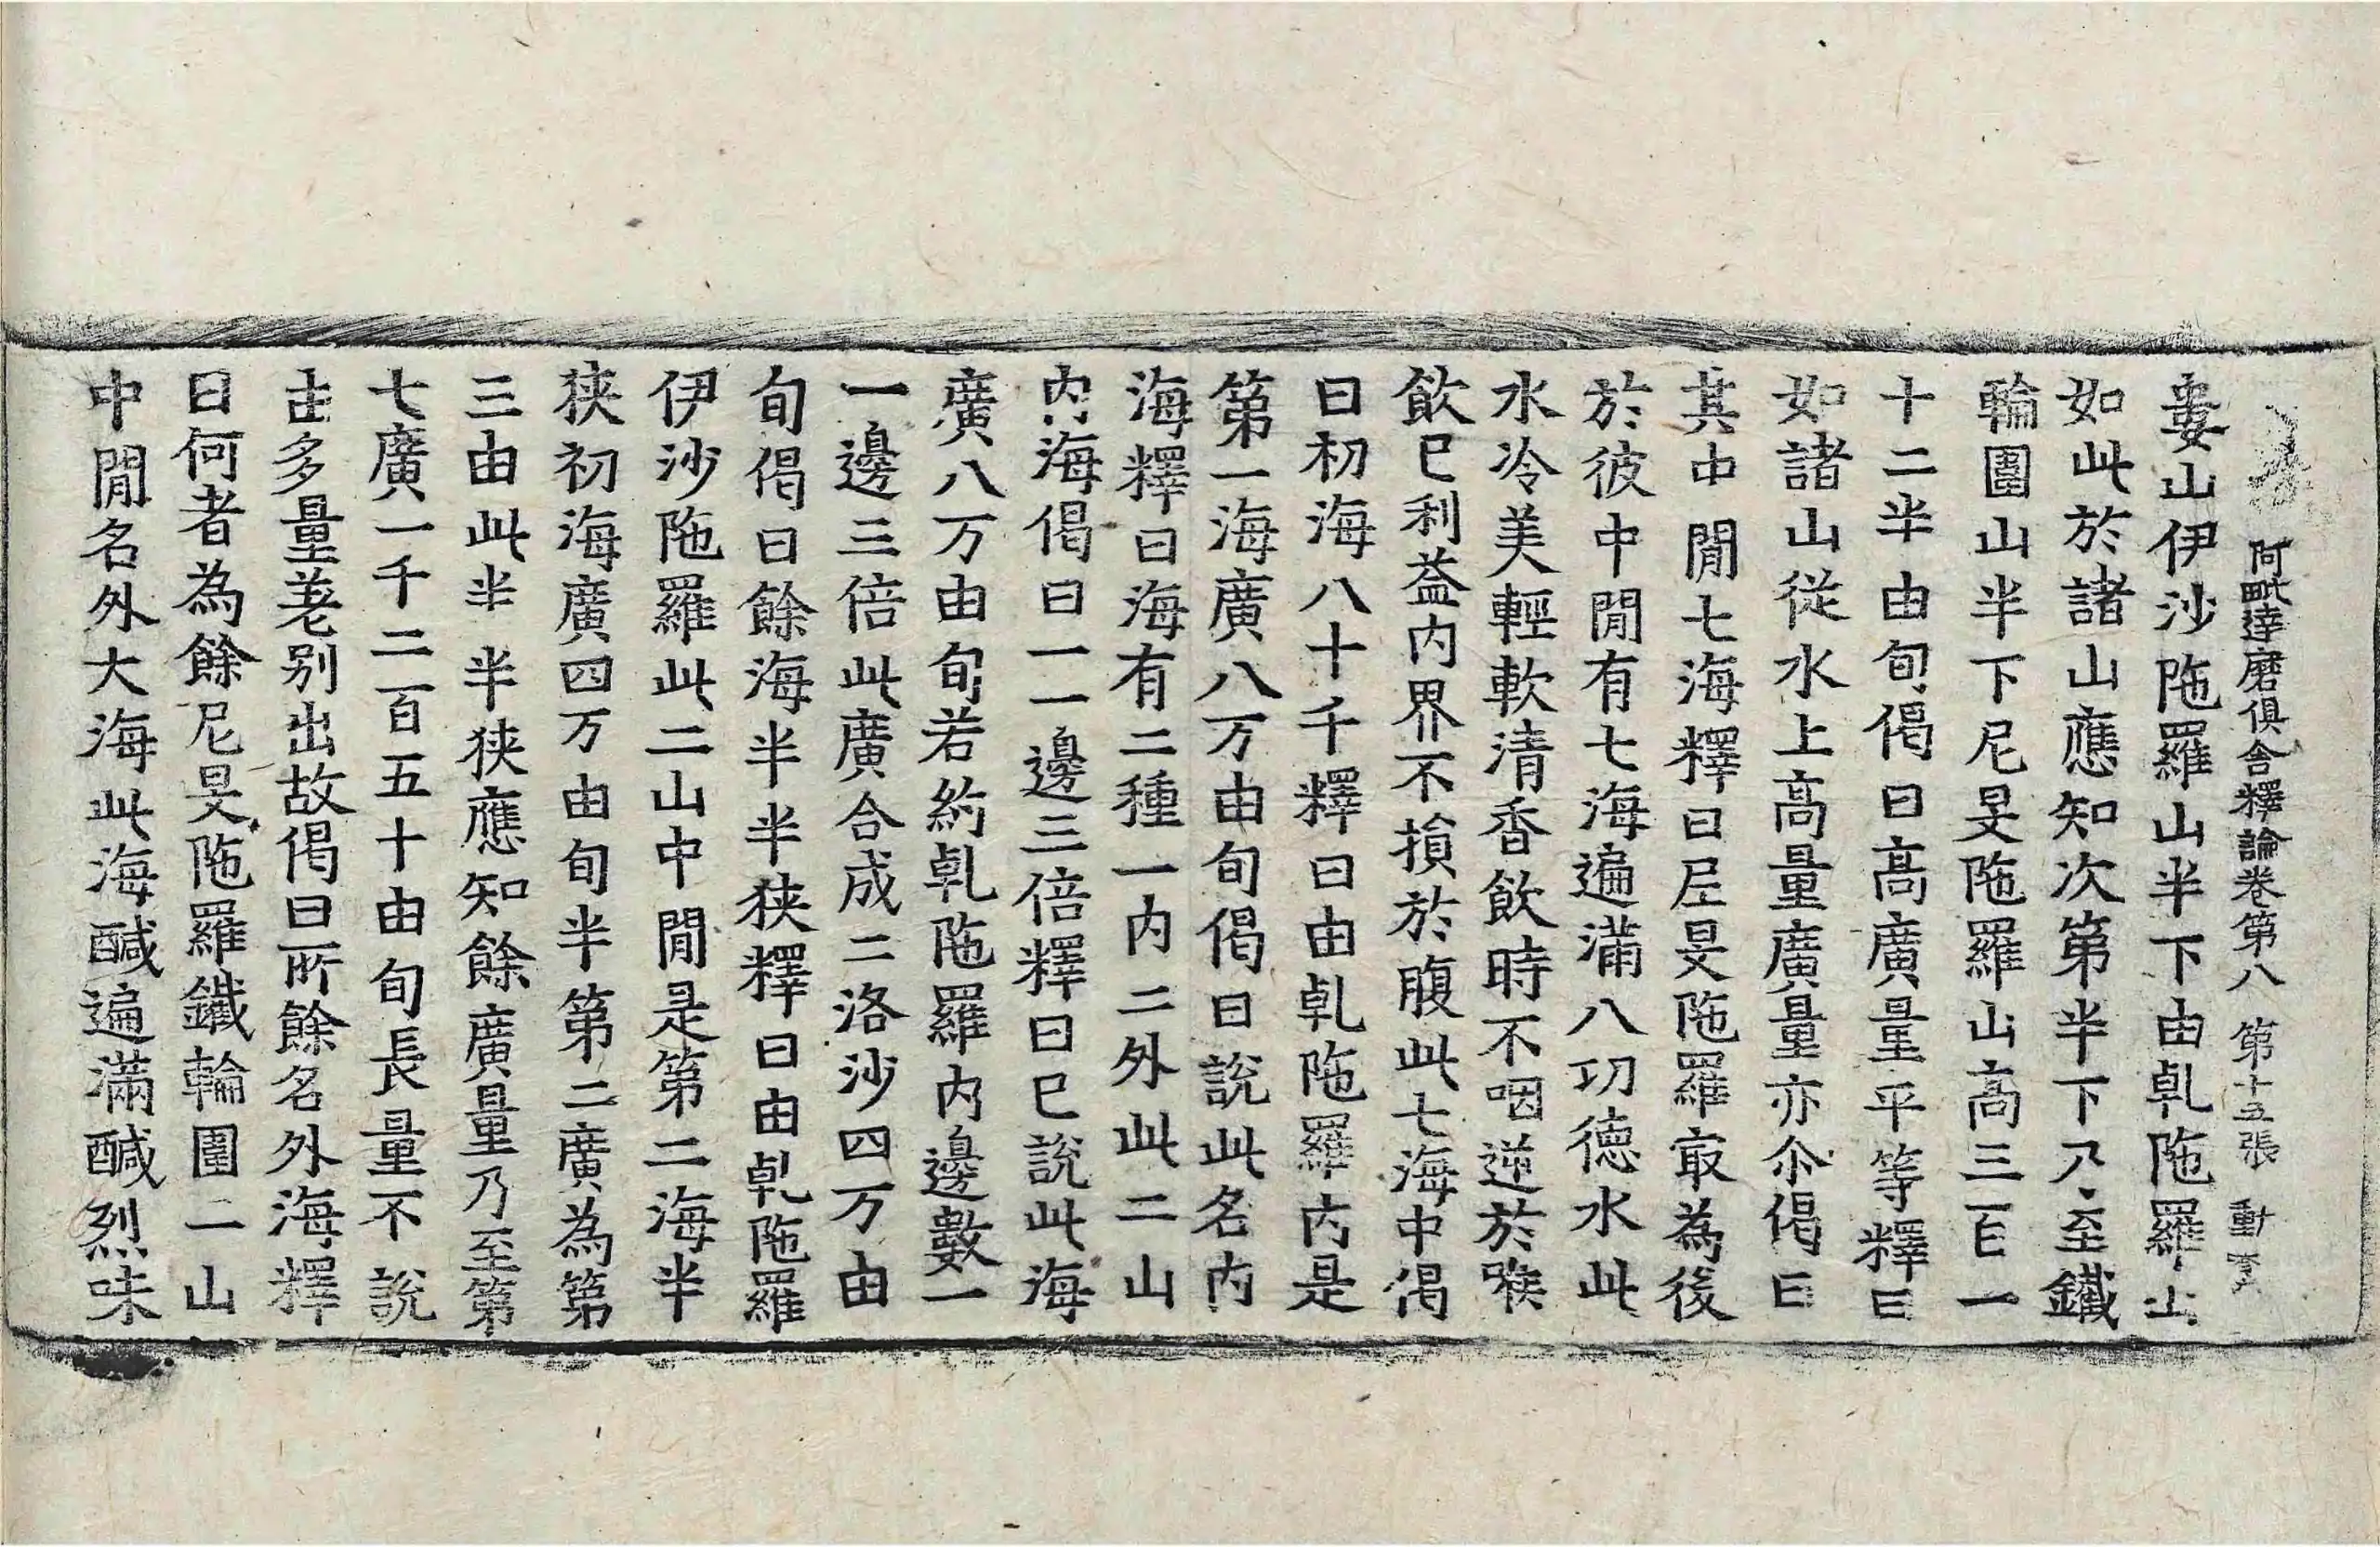 阿毗達磨俱舍釋論卷第八 第十五張 動
婁山伊沙陁羅山半下由乹陁羅山
如此於諸山應知次第半下乃至鐵
輪圍山半下尼旻陁羅山高三百一
十二半由旬偈曰高廣量平等釋曰
如諸山從水上高量廣量亦尒偈曰
其中閒七海釋曰尼旻陁羅㝡為後
於彼中閒有七海遍滿八功德水此
水冷美輕軟清香飲時不咽逆於喉
飲已利益内界不損於腹此七海中偈
曰初海八十千釋曰由乹陁羅内是
第一海廣八万由旬偈曰說此名内
海釋曰海有二種一内二外此二山
内海偈曰一一邊三倍釋曰已說此海
廣八万由旬若約乹陁羅内邊數一
一邊三倍此廣合成二洛沙四万由
旬偈曰餘海半半狹釋曰由乹陁羅
伊沙陁羅此二山中閒是第二海半
狹初海廣四万由旬半第二廣為第
三由此半半狹應知餘廣量乃至第
七廣一千二百五十由旬長量不說
由多量差别出故偈曰所餘名外海釋
曰何者為餘尼旻陁羅鐵輪圍二山
中閒名外大海此海醎遍滿醎烈味